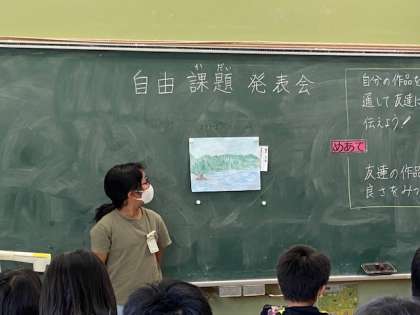 か だい
自由 課題 発表会
自分の作品を
通して友達に
伝えよう!
めあて
友達の作品
良さをみつ